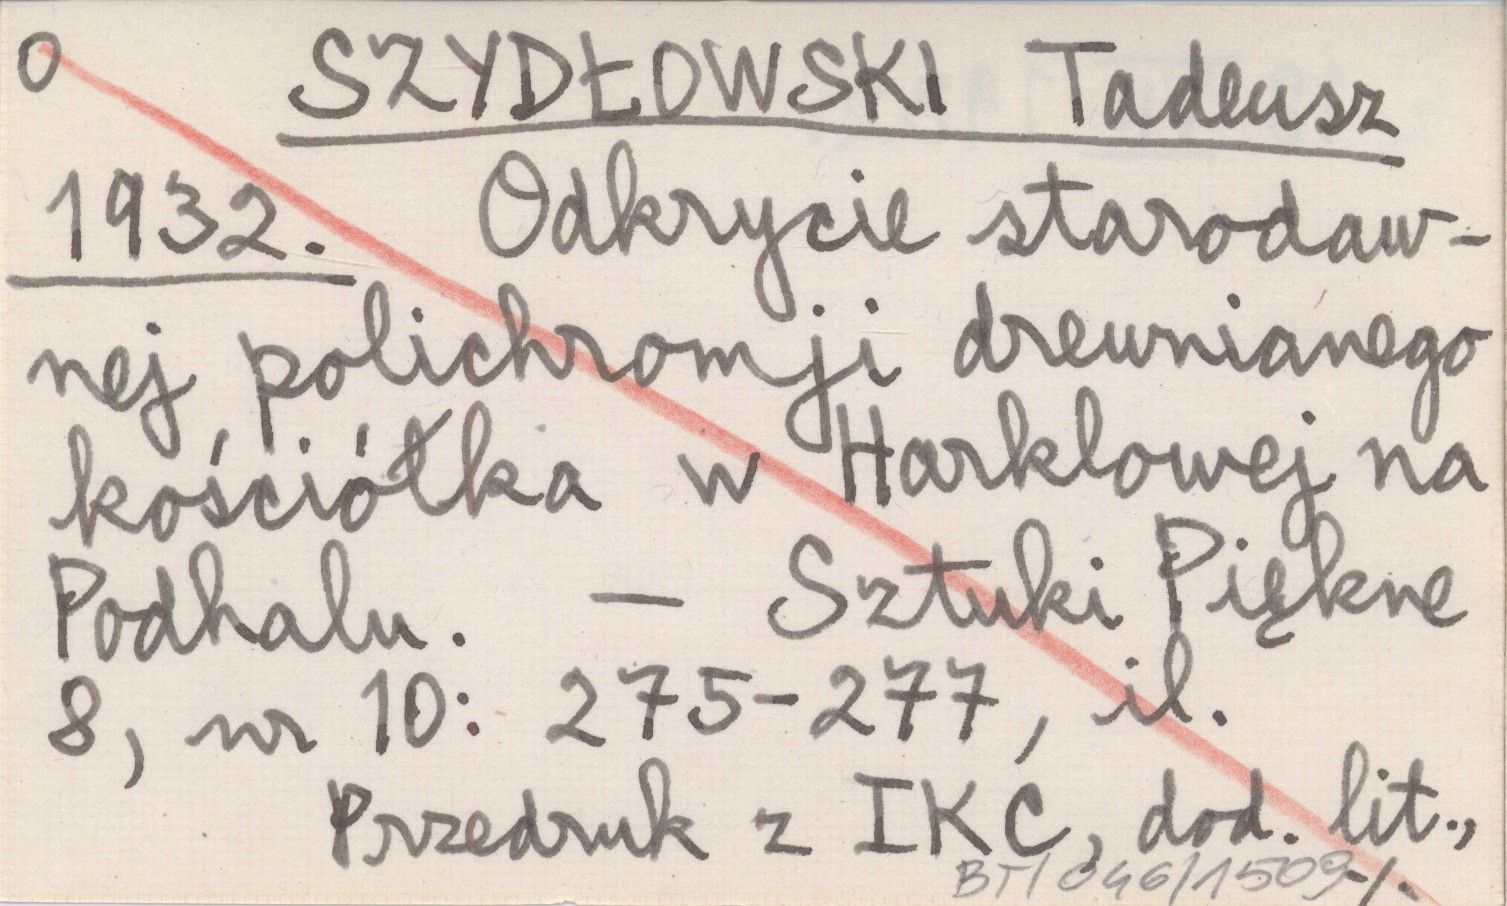 O SZYDŁOWSKI Tadeusz
1932. Odkrycie starodaw-
nej polichromji drewnianego
kościółka w Harklowej na
Podhalu. — Sztuki Piękne
8, nr 10: 275-277, il.
Przedruk z IKC, dod. lit.,
BT/046/1509-/.